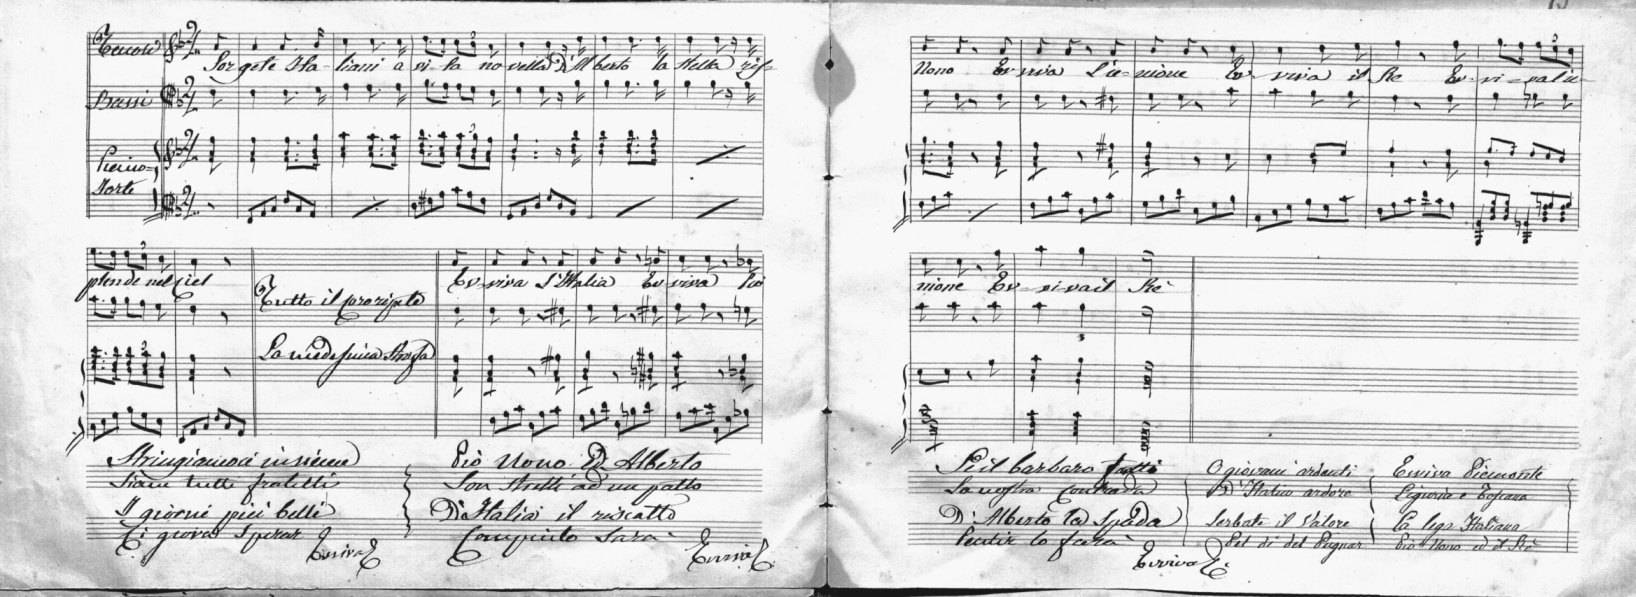 Sorgete Italiani a vita novella D'Alberto la stella ris-
Bassi
Piano=
Forte
plende nel ciel
Tutto il
La medesima
Ev-viva l'Italia Ev viva Pio
Stringiamoci insieme
Siam tutti fratelli
I giorni più belli
Ci giova sperar
Evviva
Pio Nono Ed Alberto
Son stretti ad un patto
D'Italia il riscatto
Compiuto sarà
Evviva
Nono Ev viva l'u-nione Ev viva il Re Ev-vi-va l'u-
nione Ev-viva il Rè
Se il barbaro
La nostra Contrada
D'Alberto la Spada
Pentir lo farà
Evviva
O giovani ardenti
D'Italico ardore
Serbate il Valore
Pel dì del Pugnar
Evviva Piemonte
Liguria e Toscana
La lega Italiana
Pio Nono ed il Rè